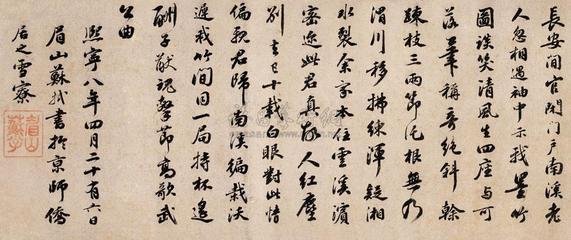 長安閒官閉門戶南溪老
人忽相過袖中示我墨竹
圖談笑清風生四座与可
落筆稱奇絕斜幹
疎枝三兩節託根無乃
渭川移拂練渾疑湘
水裂余家本住雲溪濱
密迩此君真故人紅塵
別去已十載白眼對此情
偏親君歸南溪徧栽
遲我竹間同一局持杯遙
酬子猷魂擊節高歌武
公曲
熙寧八年四月二十有六日
眉山蘇軾書於京師僑
居之雪寮
眉山蘇軾